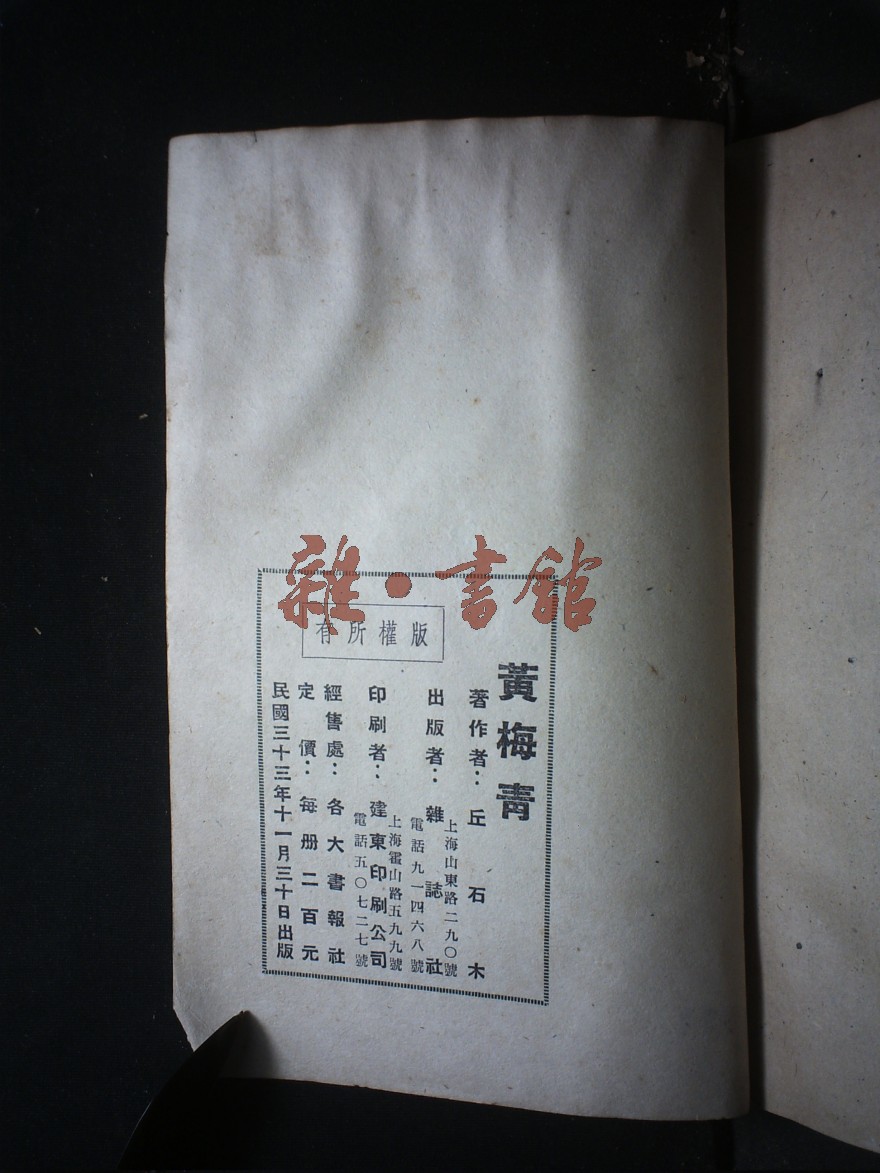 雜·書館
版權所有
黃梅青
著作者：丘石木
上海山東路二九〇號
出版者：雜誌社
電話九一四六八號
上海霍山路五九九號
印刷者：建東印刷公司
電話五〇七二七號
經售處：各大書報社
定價：每册二百元
民國三十三年十一月三十日出版